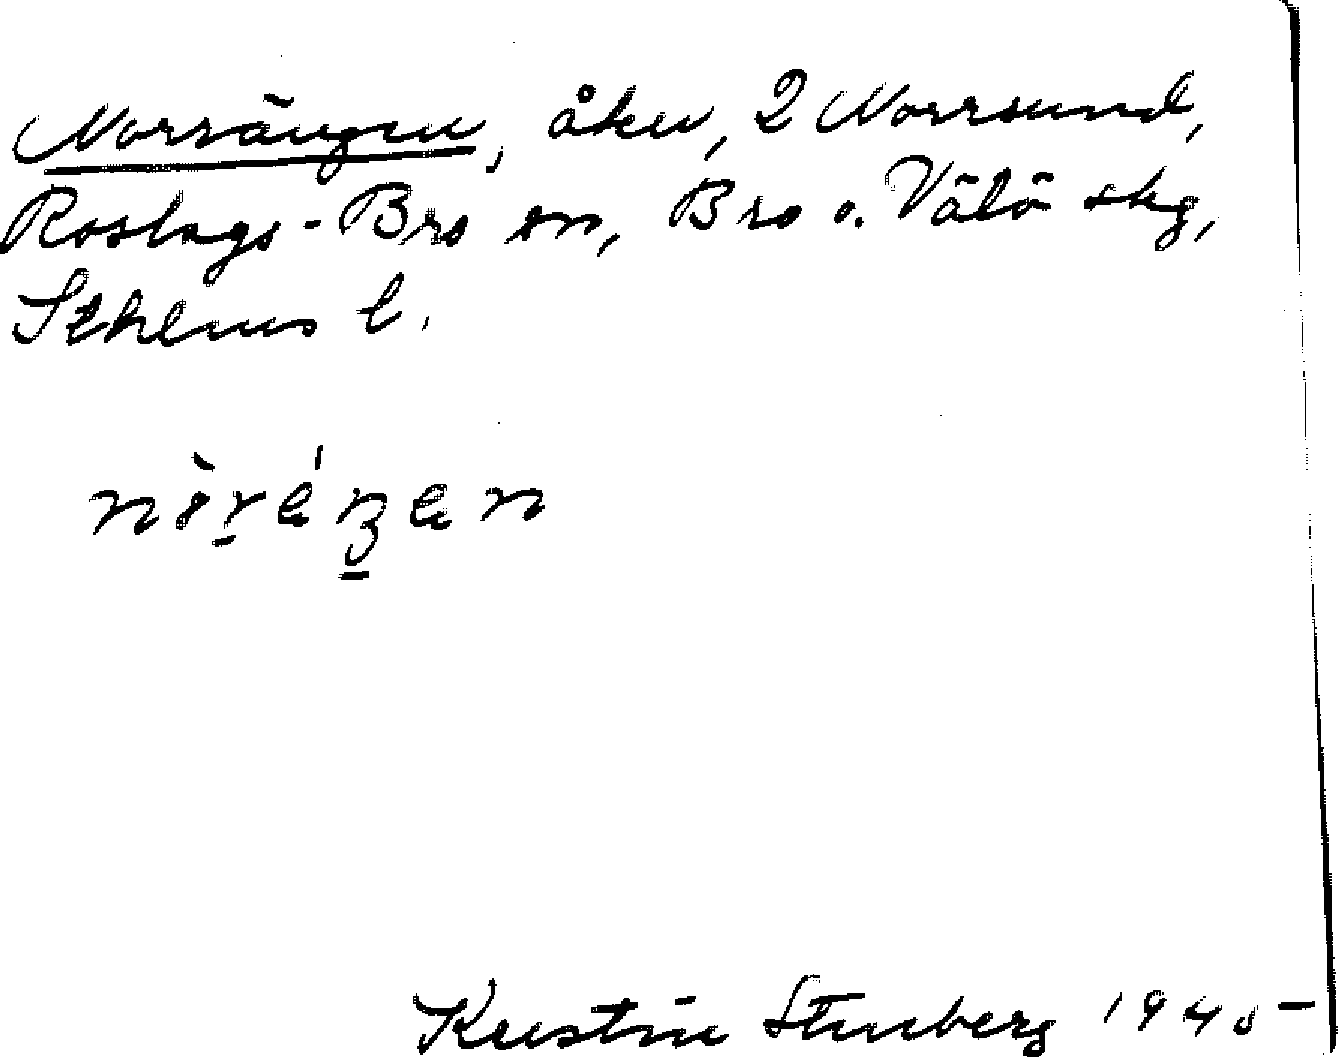 Norrängen, åker, 2 Norrsund,
Roslags-Bro sn, Bro o. Vätö skg,
Sthlms l.
Kerstin Stenberg 194